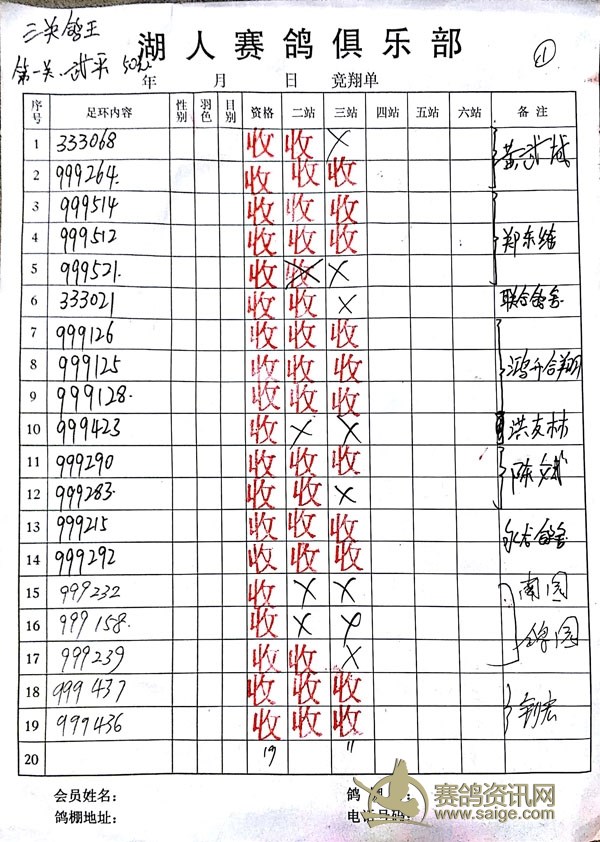 三关鸽王
第一关
50元
湖人赛鸽俱乐部
①
年 月 日 竞翔单
序号 足环内容 性别 羽色 目别 资格 二站 三站 四站 五站 六站 备注
1 333068 收 收 ×
2 999264. 收 收 收
3 999514 收 收 收
4 999512 收 收 收 郑东绪
5 999521. 收 收 ×
6 333021 收 收 × 联合鸽舍
7 999126 收 收 收
8 999125 收 收 收 鸿升合翔
9 999128. 收 收 收
10 999423 收 × × 洪友林
11 999290 收 收 收
12 999283. 收 收 ×
13 999215 收 收 收
14 999292 收 收 收
15 999232 收 × × 南园
16 999158. 收 × ×
17 999239 收 收 ×
18 999437 收 收 收
19 999436 收 收 收
20 19 11
会员姓名： 鸽
鸽棚地址： 电话号码：
赛鸽资讯网
www.saige.com